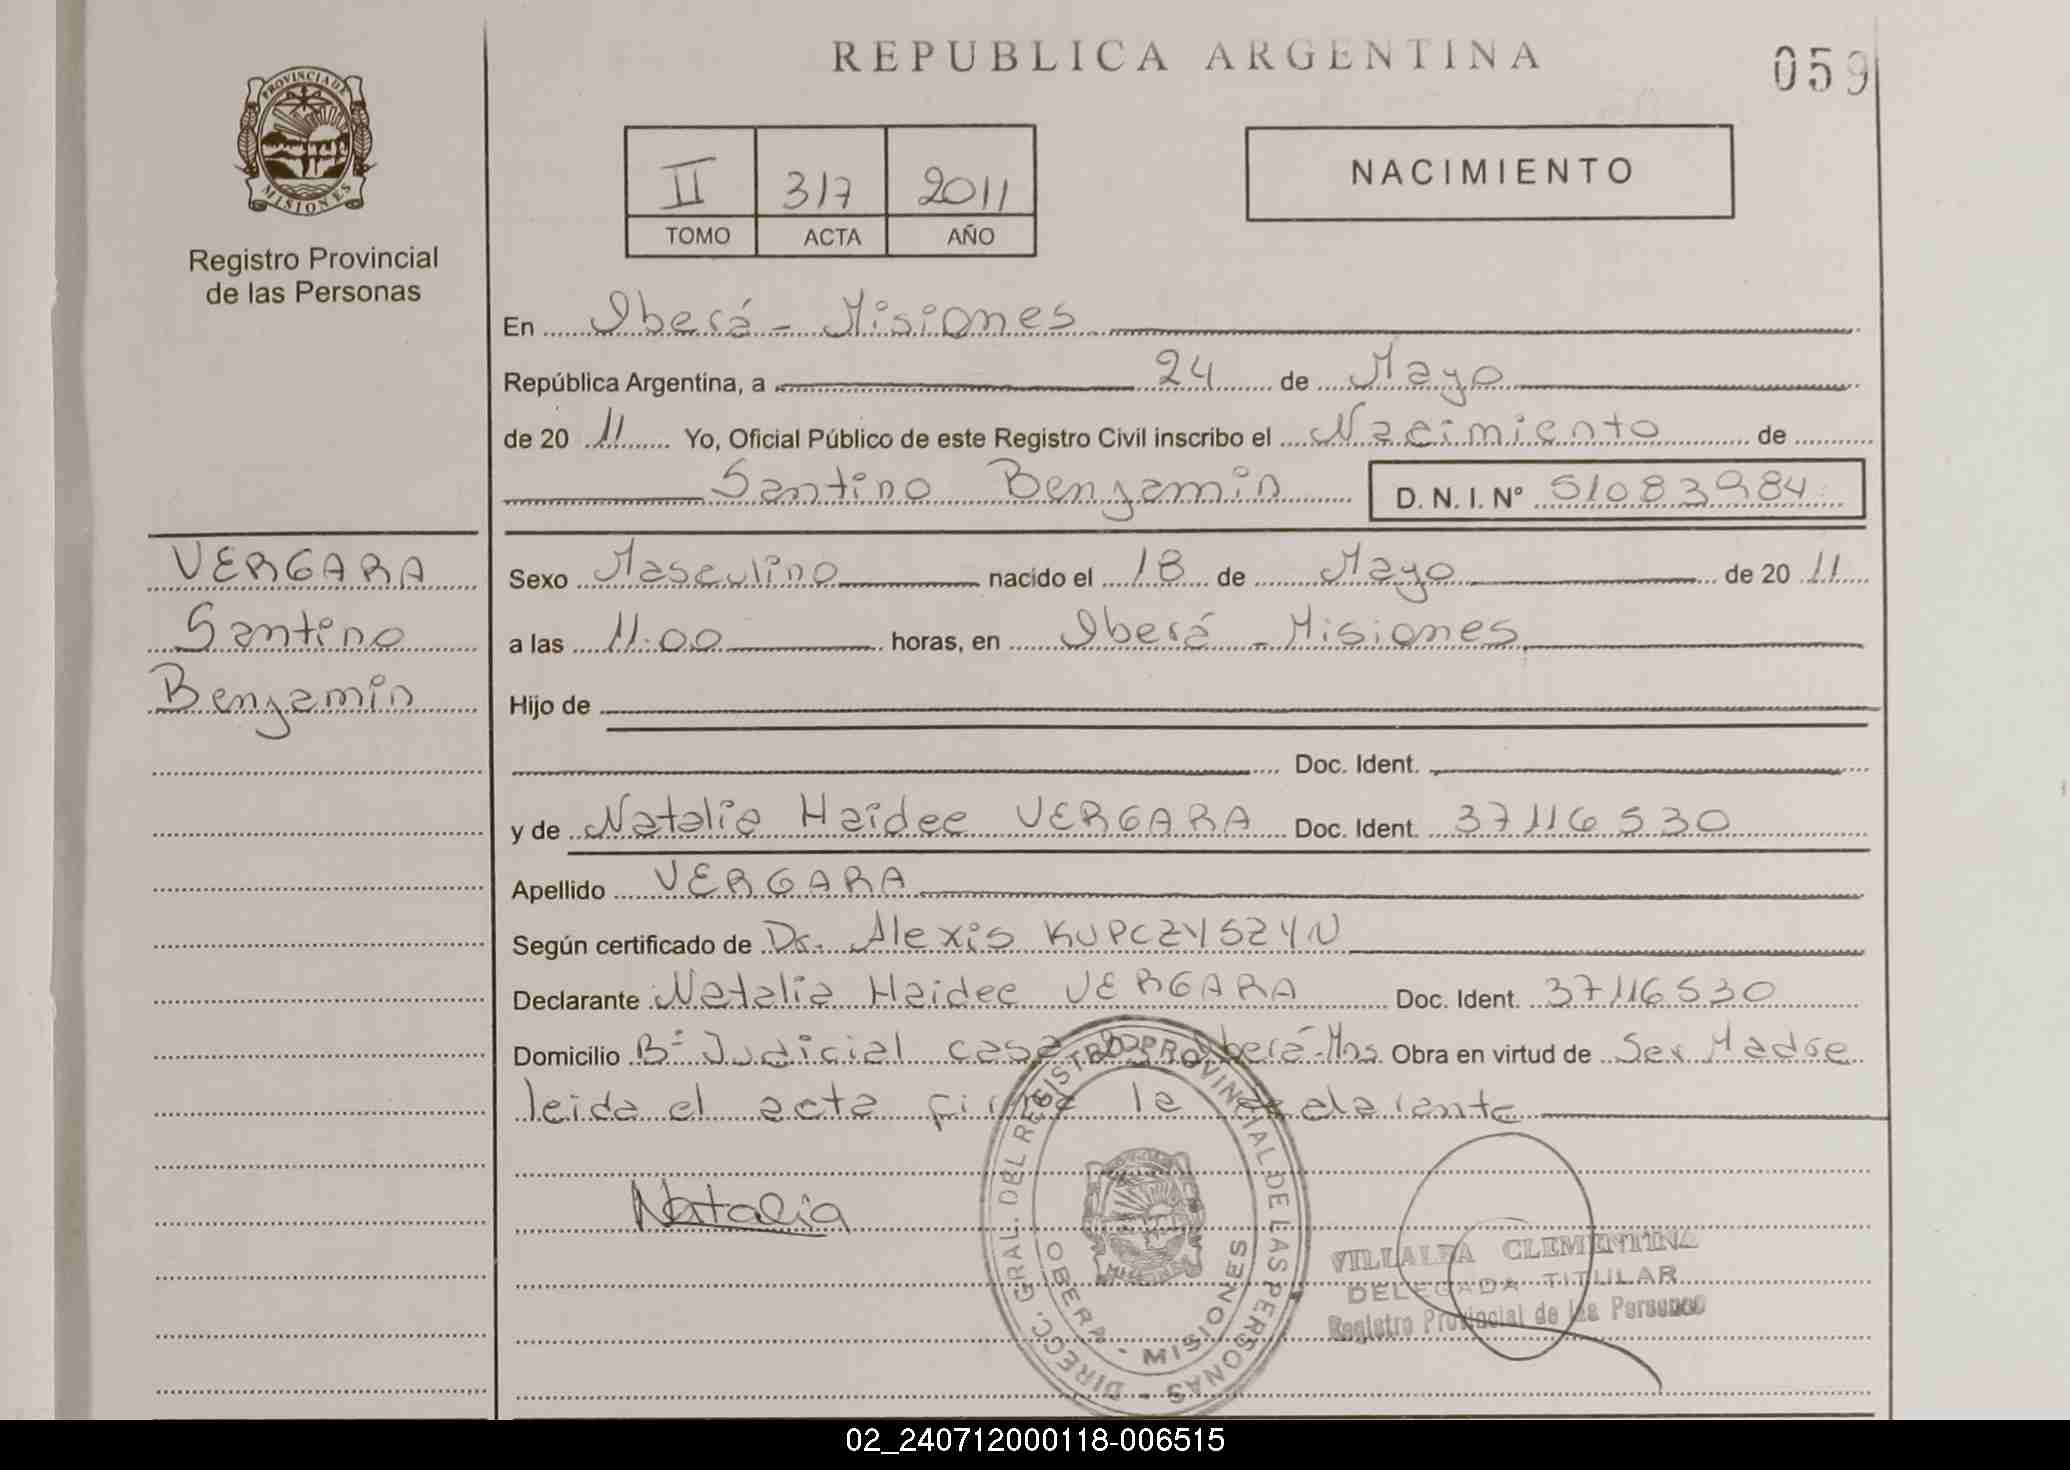 REPUBLICA ARGENTINA
059
PROVINCIA DE MISIONES
Registro Provincial
de las Personas
II 317 2011
TOMO ACTA AÑO
NACIMIENTO
En Oberá - Misiones
República Argentina, a 24 de Mayo
de 20 11 Yo, Oficial Público de este Registro Civil inscribo el Nacimiento de
Santino Benjamín D. N. I. N° 51083984
VERGARA
Santino
Benjamín
Sexo Masculino nacido el 18 de Mayo de 20 11
a las 11.00 horas, en Oberá - Misiones
Hijo de
Doc. Ident.
y de Natalia Haidee VERGARA Doc. Ident. 37116530
Apellido VERGARA
Según certificado de Dr. Alexis KUPCZYSZYN
Declarante Natalia Haidee VERGARA Doc. Ident. 37116530
Domicilio Bº Judicial casa Oberá-Mns Obra en virtud de Ser Madre
leida el acta firma la declarante
Natalia
DIRECC. GRAL. DEL REGISTRO PROVINCIAL DE LAS PERSONAS
OBERA - MISIONES
VILLALBA CLEMENTINA
DELEGADA TITULAR
Registro Provincial de las Personas
02_240712000118-006515